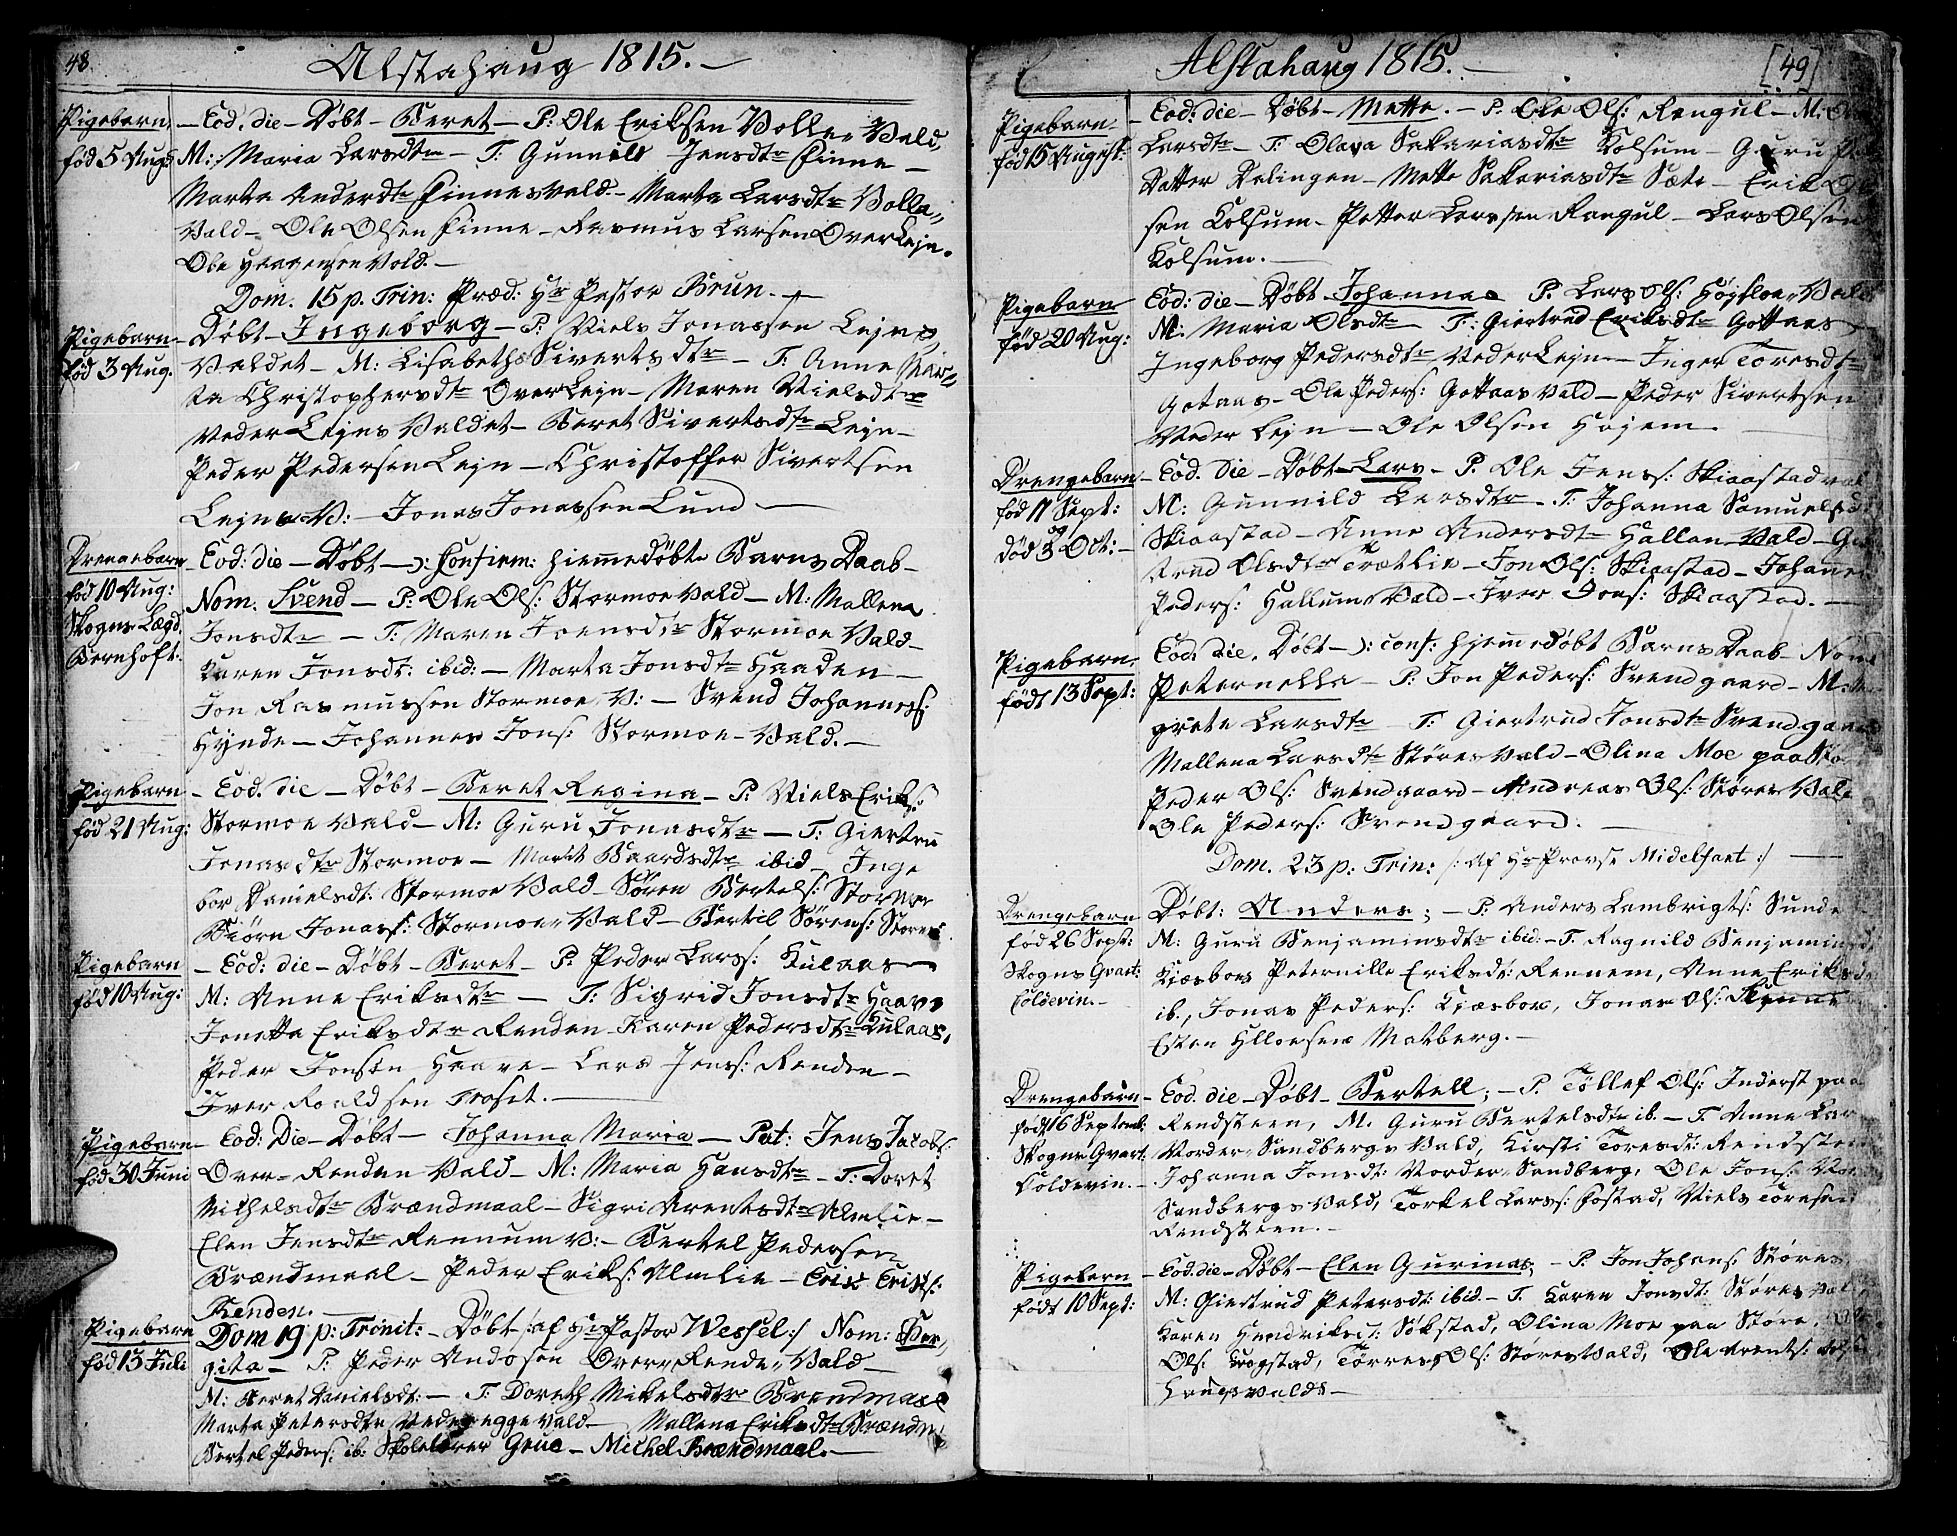 48.
Alstahaug 1815.
Pigebarn,
fød 5 Aug:
– Eod. die – Døbt – Beret – P: Ole Eriksen Volle„ Vald,
M: Maria Larsdtr – T: Gunnild Jensdtr Finne –
Marta Andersdtr Finnesvald. – Marta Larsdtr Volle„
Vald – Ole Olsen Finne – Rasmus Larsen OverLejn.
Ole Vold. –
Dom. 15 p. Trin: Præd: Hr Pastor Brun.
Pigebarn
fød 3 Aug.
Døbt – Ingeborg – P: Niels Jonassen Lejns
Valdet – M: Lisabeth Sivertsdtr – T: Anne Mar„
ta Christophersdtr OverLejn – Maren Nielsdtr
VederLejns Valdet – Beret Sivertsdtr Lejn –
Peder Pedersen Lejn – Christoffer Sivertsen
Lejns V: – Jonas Jonassen Lund –
Drengebarn
fød 10 Aug:
Skogns Lægd.
Bernhoft:
Eod: die – Døbt –): Confirm: hiemedøbte Barns Daab –
Nom. Svend – P: Ole Ols: Stormoe Vald – M: Mallena
Jonsdtr – T: Maren Joensdtr Stormoe Vald –
Karen Jonsdt: ibid: – Marta Jonsdtr Haaden –
Jon Rasmussen Stormoe V: – Svend Johanness:
Hynde – Johannes Jons: Stormoe – Vald. –
Pigebarn
fød 21 Aug:
– Eod. die – Døbt – Beret Regina – P: Niels Eriks:
Stormoe Vald – M: Guru Jonasdtr – T: Giertru
Jonasdtr Stormoe – Marit Baardsdtr ibid – Inge
bor Danielsdt: Stormoe Vald – Søren Bertels: Stormoe
Biörn Jonass: Stormoe„ Vald – Bertil Sørens: Stormoe
Pigebarn
fød 10 Aug:
– Eod: die – Døbt – Beret – P: Peder Lars: Kulaas
M: Anne Eriksdtr – T: Sigrid Jonsdtr Haave
Jonetta Eriksdtr Renden – Karen Pedersdtr Kulaas,
Peder Jonsen Haave – Lars Jens: Renden –
Iver Roaldsen Troset. –
Pigebarn
fød 30 Juni
– Eod: Die – Døbt – Johanna Maria – Pat: Jens Jacobs:
Over – Renden Vald – M: Maria Hansdtr – T: Doret
Mikhelsdtr Brændmaal – Sigri Arentsdtr Almlie –
Elen Jensdtr Rennum V: – Bertel Pedersen
Brændmaal – Peder Eriks: Almlie – Erik Eriks:
Renden. –
Pigebarn
fød 15 Juli
Dom 19 p: Trinit: – Døbt /: af Hr Pastor Wessel :/ Nom: Ber„
gita – P: Peder Andøsen Over„ Rende„ Vald –
M: Beret Danielsdt: – T: Doreth Mikelsdtr Brendmael
Marta Petersdtr Vald – Mallena Eriksdtr Brændm:
Bertel Peders: ib. Skolelærer Grue – Michel Brændmaal. –
Alstahaug 1815.
[49]
Pigebarn
fød 15 August:
– Eod: die – Døbt – Mette. – P: Ole Ols: Rengul – M:
Larsdtr – T: Olava Sakariasdtr Kolsum – Guru
Datter Dalingen – Mette Sakariasdtr Sæte – Erik Ol
sen Kolsum – Petter Larssen Rangul – Lars Olsen
Kolsum. –
Pigebarn
fød 20 Aug:
Eod: die – Døbt Johanna P. Lars Ols: Højsloe„ Vald
M: Maria Olsdtr – T: Giertrud Eriksdtr Gottaas
Ingeborg Pedersdtr VederLejn – Inger Toresdtr
Gotaas – Ole Peders: Gottaas Vald – Peder Sivertsen
Veder Lejn – Ole Olsen Højem. –
Drengebarn
fød 17 Sept:
og
død 3 Oct: –
– Eod. die – Døbt – Lars – P. Ole Jens: Skiaastad val
M: Gunnild Larsdtr – T: Johanna Samuelsd
Skiaastad – Anne Andersdtr Hallan Vald – Gier
trud Olsdtr Trætlie – Jon Ols: Skiaastad – Johanes
Peders: Hallum Vald – Iver Jons: Skiaastad. –
Pigebarn
født 13 Sept:
Eod: die, Døbt –): conf: hjemedøbt Barns Daab – Nom
Peternella – P: Jon Peders: Svendgaard – M:
grete Larsdtr – T: Giertrud Jonsdtr Svendgaard
Mallena Larsdtr Støres Vald – Olina Moe paa Stø
Peder Ols: Svendgaard – Andreas Ols: Støres Vald
Ole Peders: Svendgaard. –
Dom. 23 p: Trin: /: af Hr Provst Midelfart :/ –
Drengebarn
fød 26 Sept:
Skogns Qvart:
Coldevin. –
Døbt: Anders; – P: Anders Lambrigts: Sunde
M: Guru Benjaminsdtr ibid: – T. Ragnild Benjaminsd
Kiæsboes Peternille Eriksdt: Rennem, Anne Eriksd
ib., Jonas Peders: Kiæsboe, Jonas Ols: Skynne
Esten Matberg. –
Drengebarn –
født 16 Septemb:
Skogns Qvart:
Coldevin. –
Eod. die – Døbt – Bertell; – P. Töllef Ols: Inderst paa
Rendsteen, M. Guru Bertelsdtr ib. – T. Anne Lar
Vorder„ Sandbergs Vald, Kirsti Toresdt: Rendsteen
Johanna Jonsdt: Vorder„ Sandberg, Ole Jons:
Sandbergs Vald, Torkel Larss: Fostad, Niels Töresen
Rendsteen. –
Pigebarn
født 10 Sept:
– Eod. die – Døbt – Elen Gurina; – P. Jon Johans: Støres
M: Giertrud Petersdt: ibid. – T. Karen Jonsdt: Støres Vald
Karen Hendriksd: Sökstad, Olina Moe paa Støre,
Ols: Fogstad, Törres Ols: Stores Vald, Ole Arents:
Haugs Valdt –